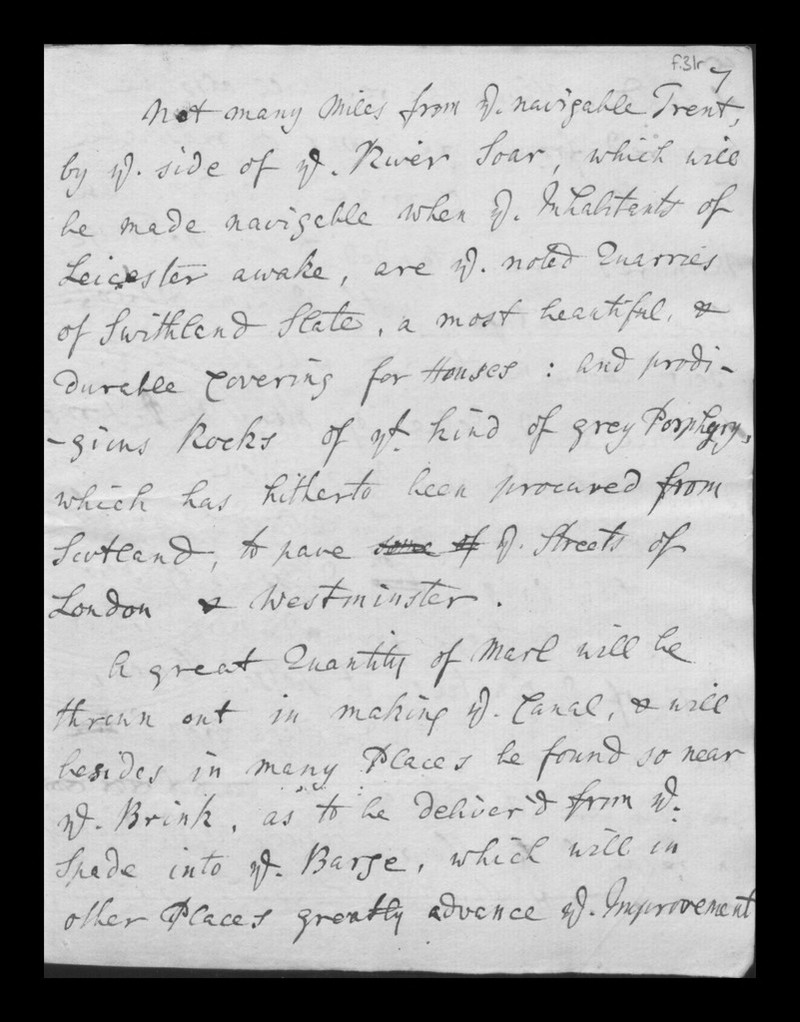 f.31r 7
Not many Miles from ye. navigable Trent,
by ye. side of ye. River Soar, which will
be made navigable when ye. Inhabitants of
Leicester awake, are ye. noted Quarries
of Swithland Slate, a most beautiful, &
durable Covering for Houses : and prodi-
-gious Rocks of yt. kind of grey Porphyry,
which has hitherto been procured from
Scotland, to pave some of ye. Streets of
London & Westminster.
A great Quantity of Marl will be
thrown out in making ye. Canal, & will
besides in many Places be found so near
ye. Brink, as to be deliver'd from ye.
Spade into ye. Barge, which will in
other Places greatly advance ye. Improvement